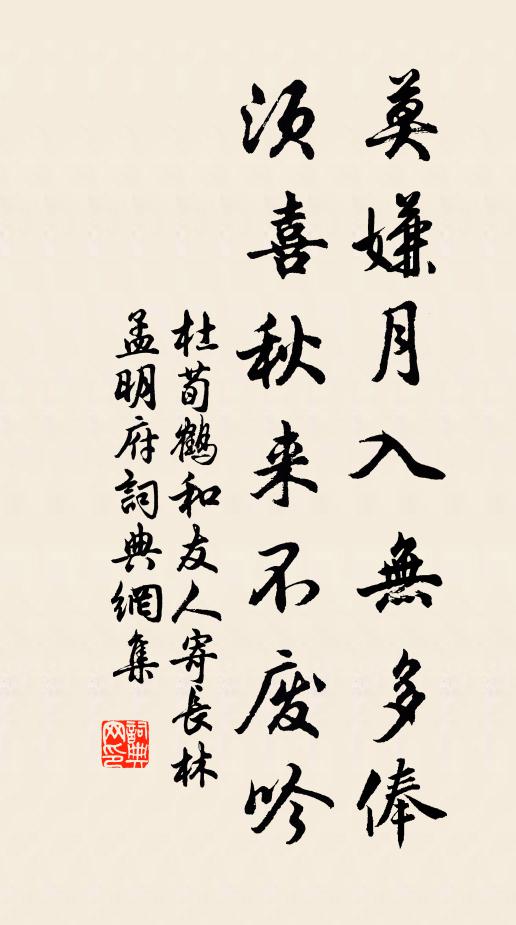 莫嫌月入無多俸
須喜秋来不废吟
杜荀鶴和友人寄長林
孟明府詞典網集
詞典
网印